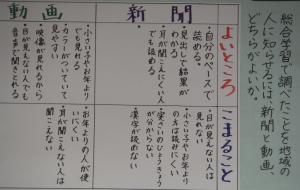 総合学習で調べたことを地域の
人に知らせるには、新聞と動画、
どちらがよいか。
よいところ
こまること
新聞
・自分のペースで
読める
・見出しで結果が
わかる
・耳が聞こえにくい人
でも読める
・目が見えない人は
見れない
・小さい子やお年より
の方は読みにくい
・実さいのひょうきょう
が分からない
・漢字が読めない
動画
・小さい子やお年より
でも見れる
・カラーがついていて
見やすい
・映像が見れるから
・目が見えない人でも
音声が聞こえる
・お年よりの人が使
いにくい
・耳が聞こえない人は
聞こえない